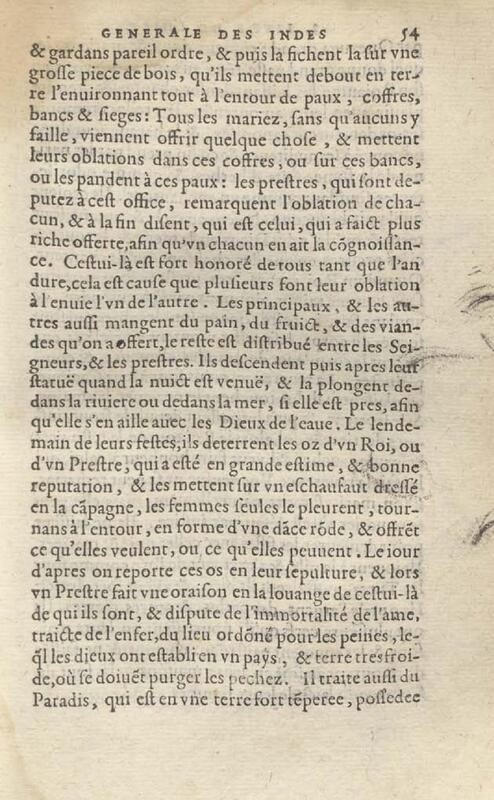 GENERALE DES INDES 54
& gardans pareil ordre, & puis la fichent la sur vne
grosse piece de bois, qu'ils mettent debout en ter-
re l'enuironnant tout à l'entour de paux, coffres,
bancs & sieges: Tous les mariez, sans qu'aucuns y
faille, viennent offrir quelque chose, & mettent
leurs oblations dans ces coffres, ou sur ces bancs,
ou les pandent à ces paux: les prestres, qui sont de-
putez à cest office, remarquent l'oblation de cha-
cun, & à la fin disent, qui est celui, qui a faict plus
riche offerte, afin qu'vn chacun en ait la cõgnoissan-
ce. Cestui-là est fort honoré de tous tant que l'an
dure, cela est cause que plusieurs font leur oblation
à l'enuie l'vn de l'autre. Les principaux, & les au-
tres aussi mangent du pain, du fruict, & des vian-
des qu'on a offert, le reste est distribué entre les Sei-
gneurs, & les prestres. Ils descendent puis apres leur
statuë quand la nuict est venuë, & la plongent de-
dans la riuiere ou dedans la mer, si elle est pres, afin
qu'elle s'en aille auec les Dieux de l'eaue. Le lende-
main de leurs festes, ils deterrent les oz d'vn Roi, ou
d'vn Prestre, qui a esté en grande estime, & bonne
reputation, & les mettent sur vn eschaufaut dressé
en la cãpagne, les femmes seules le pleurent, tour-
nans à l'entour, en forme d'vne dãce rõde, & offrẽt
ce qu'elles veulent, ou ce qu'elles peuuent. Le iour
d'apres on reporte ces os en leur sepulture, & lors
vn Prestre fait vne oraison en la louange de cestui-là
de qui ils sont, & dispute de l'immortalité de l'ame,
traicte de l'enfer, du lieu ordõné pour les peines, le-
q̃l les dieux ont establi en vn pays, & terre tres froi-
de, où se doiuẽt purger les pechez. Il traite aussi du
Paradis, qui est en vne terre fort tẽperee, possedee